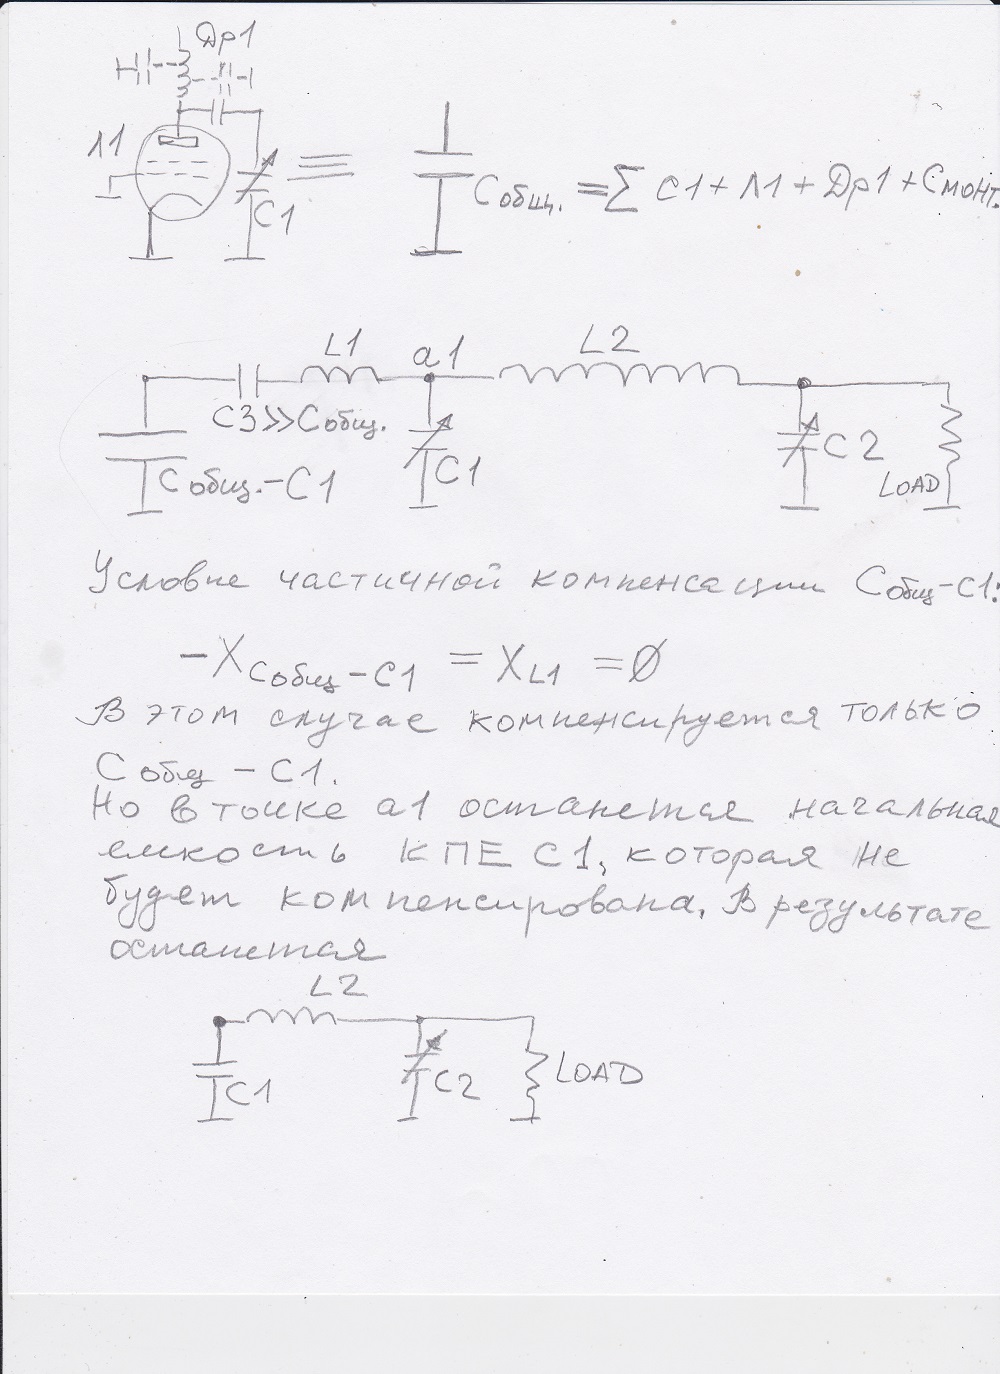 Др1
Л1
C1
Собщ. = ∑ C1 + Л1 + Др1 + Cмонт.
L1
a1
L2
C3 >> Cобщ.
Cобщ.-C1
C1
C2
LOAD
Условие частичной компенсации Cобщ-C1:
-XCобщ-C1 = XL1 = Ø
В этом случае компенсируется только
Cобщ - C1.
Но в точке a1 останется начальная
емкость КПЕ C1, которая не
будет компенсирована. В результате
останется
L2
C1
C2
LOAD